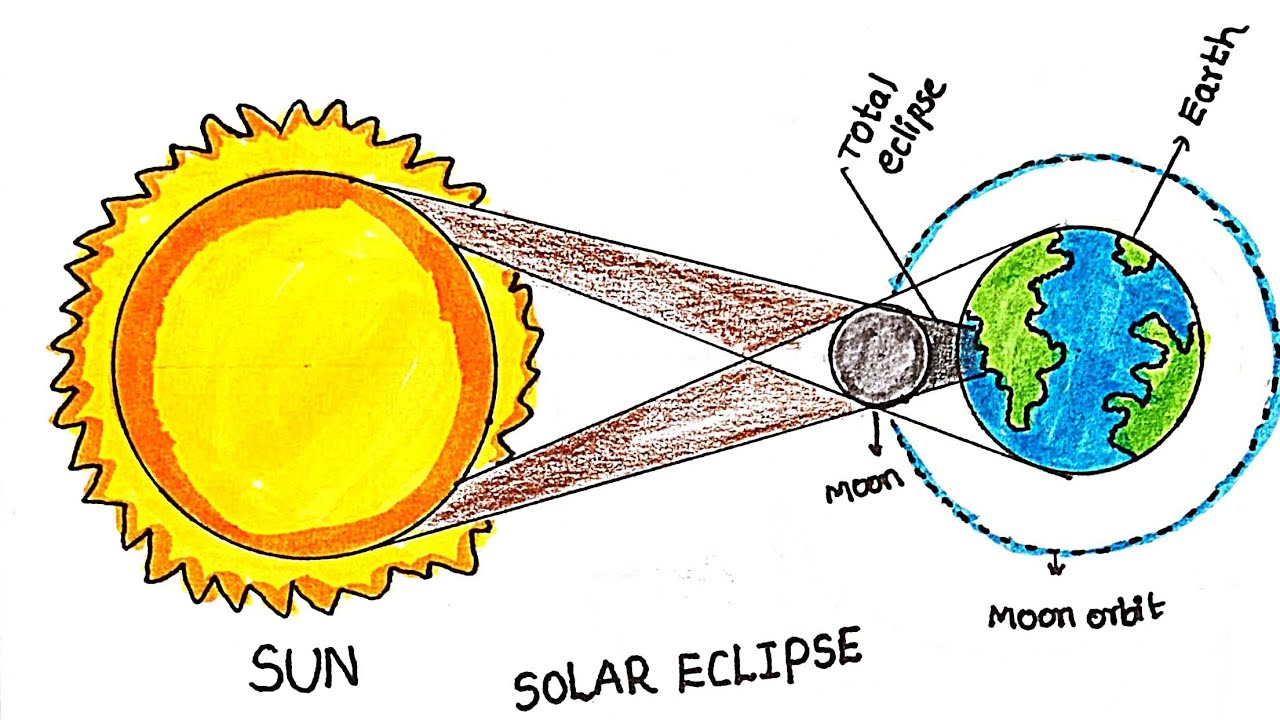 Total
eclipse
Earth
Moon
Moon orbit
SUN
SOLAR ECLIPSE